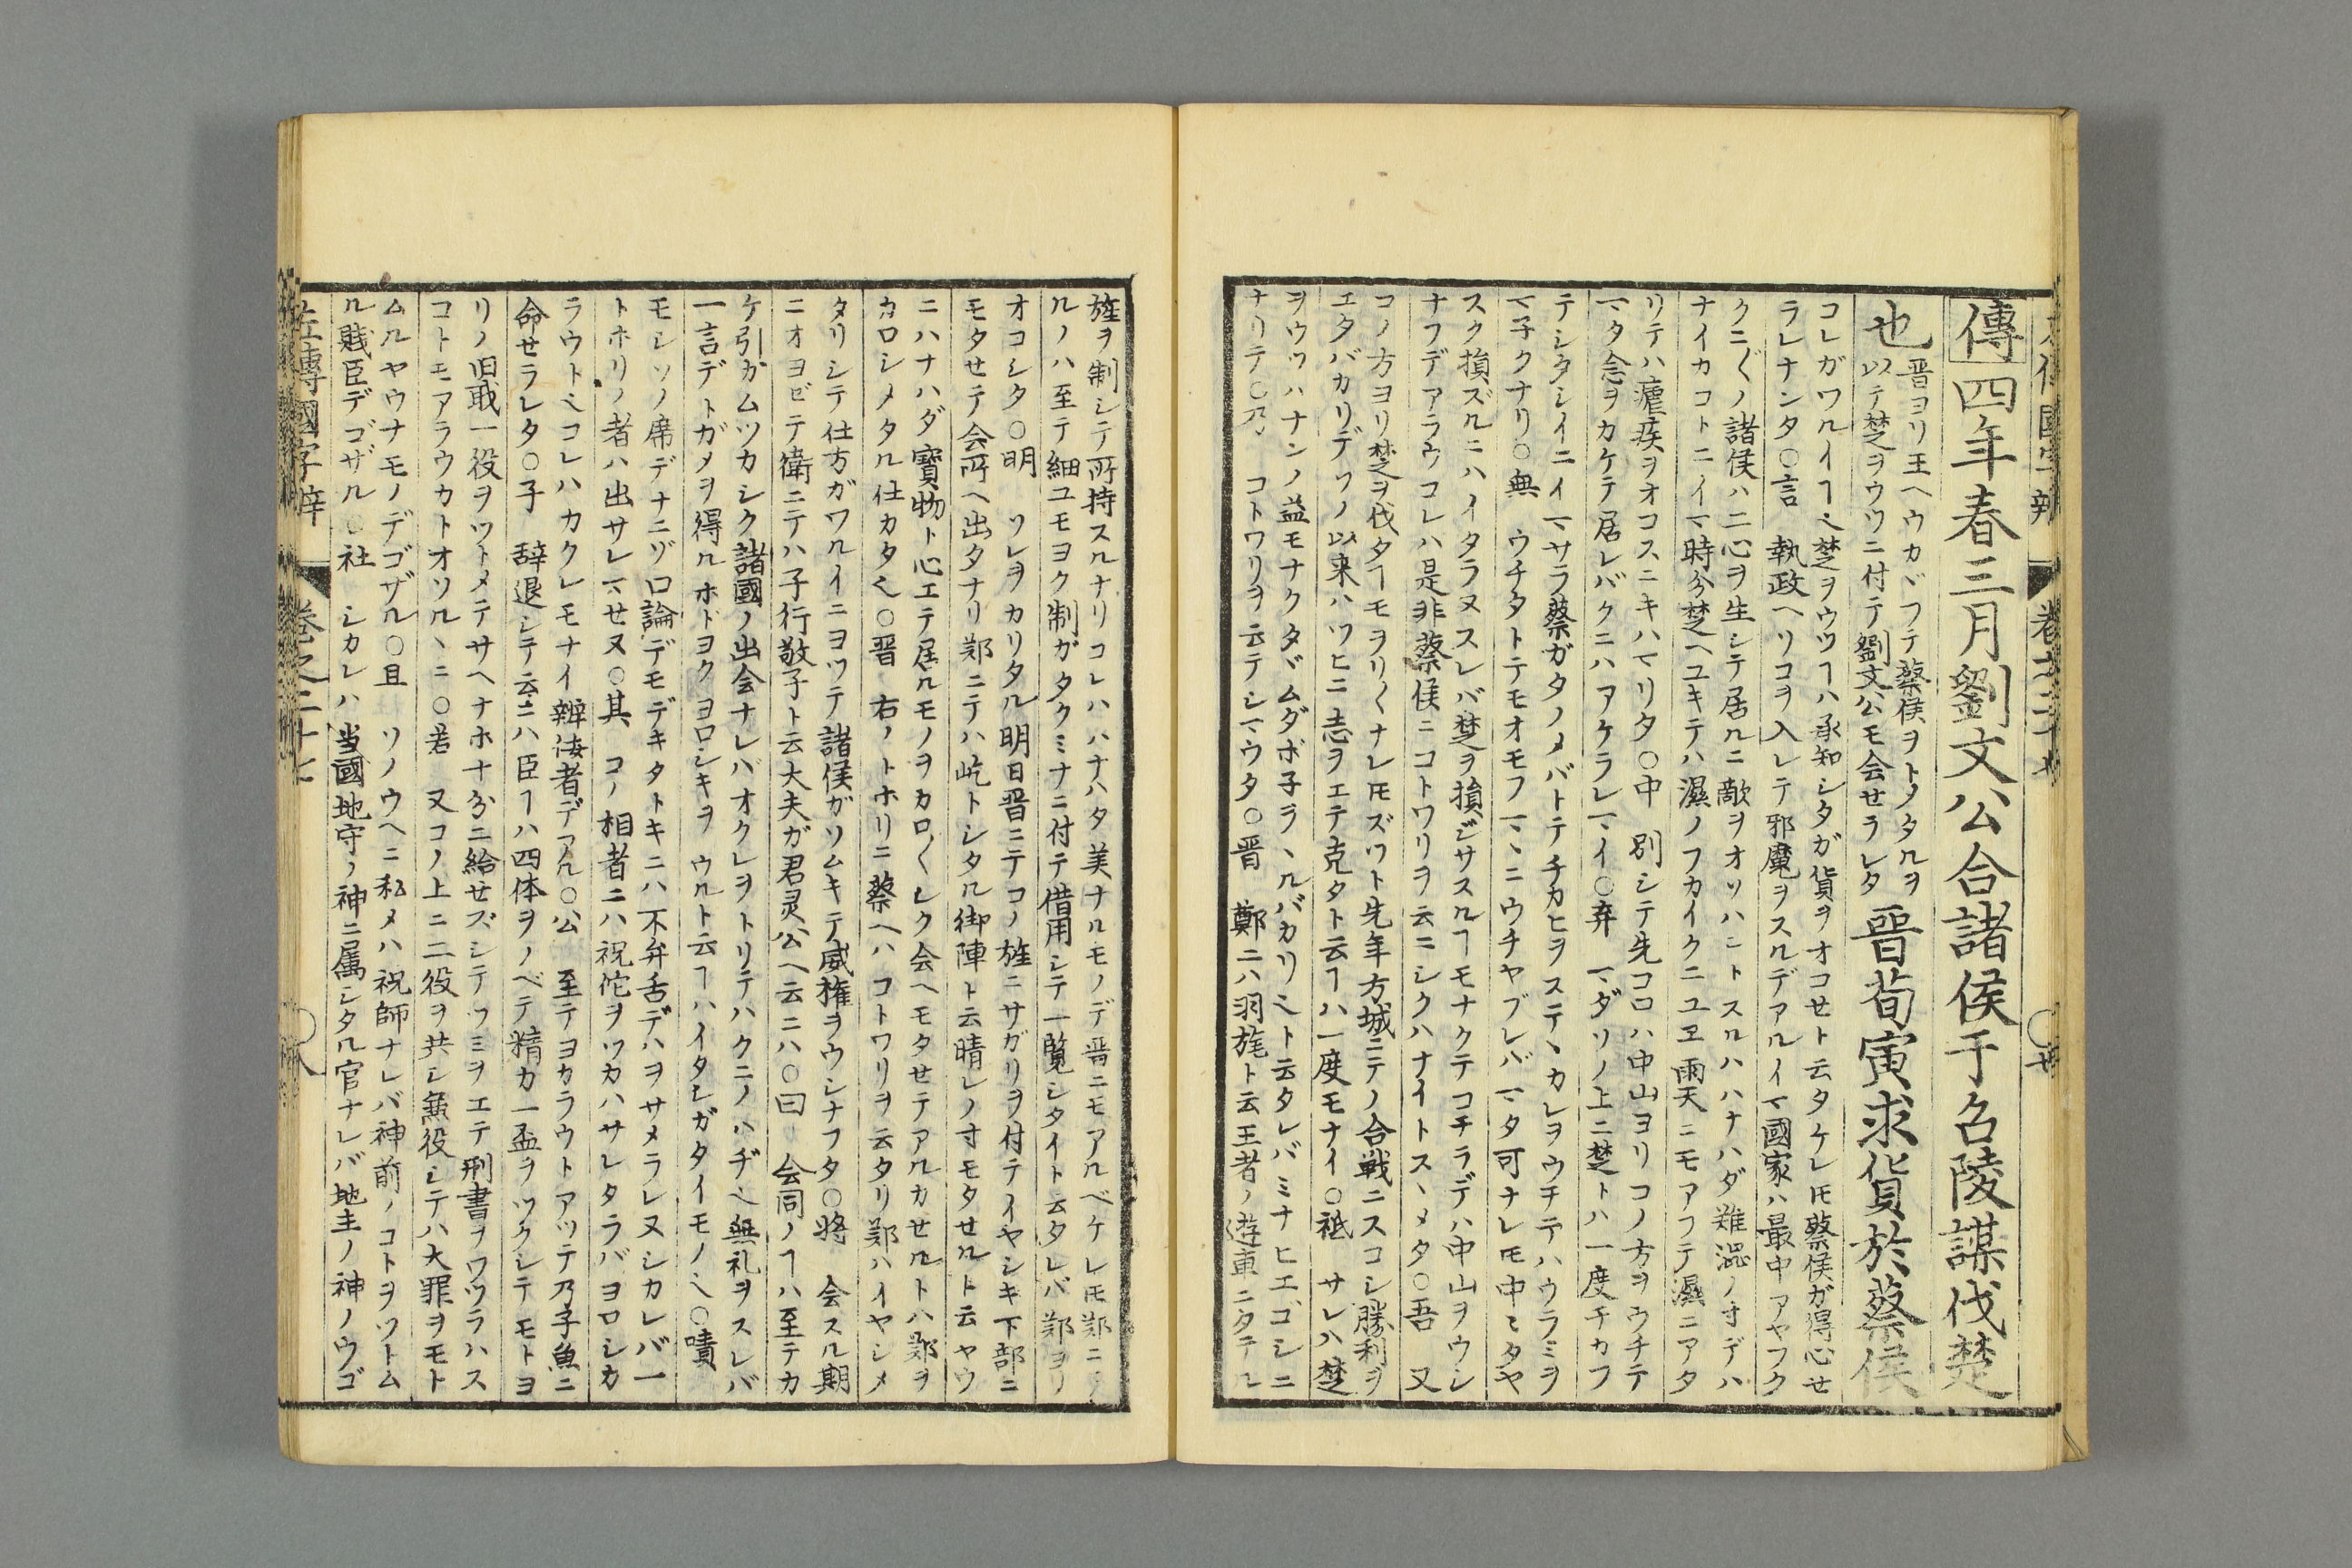 傳四年春三月劉文公合諸侯于召陵謀伐楚
也
晋ヨリ王ヘウカヾフテ蔡侯ヲトメタルヲ
以テ楚ヲウツニ付テ劉文公モ会せラレタ
晋荀寅求貨於蔡侯
コレガワルイヿ〻楚ヲウツヿハ承知シタガ貨ヲオコせト云タケレ𪜈蔡侯ガ得心せ
ラレナンタ〇言 執政ヘリコヲ入レテ邪魔ヲスルデアルイマ國家ハ最中アヤフク
クニ〴〵ノ諸侯ハ二心ヲ生シテ居ルニ敵ヲオソハントスルハハナハダ難澁ノ寸デハ
ナイカコトニイマ時分楚ヘユキテハ濕ノフカイクニユヱ雨天ニモアフテ濕ニアタ
リテハ瘧疾ヲオコスニキハマリタ〇中 別シテ先コロハ中山ヨリコノ方ヲウチテ
マタ念ヲカケテ居レバクニハアケラレマイ〇弃 マダソノ上ニ楚トハ一度チカフ
テシタシイニイマサラ蔡ガタノメバトテチカヒヲステヽカレヲウチテハウラミヲ
マ子クナリ〇無 ウチタトテモオモフマヽニウチヤブレバマタ可ナレ𪜈中〻タヤ
スク損ズルニハイタラヌスレバ楚ヲ損ジサスルヿモナクテコチラデハ中山ヲウシ
ナフデアラウコレハ是非蔡侯ニコトワリヲ云ニシクハナイトスヽメタ〇吾 又
コノ方ヨリ楚ヲ伐タヿモヲリ〳〵ナレ𪜈ズツト先年方城ニテノ合戦ニスコシ勝利ヲ
エタバカリデソノ以来ハツヒニ志ヲエテ克タト云ヿハ一度モナイ〇祗 サレハ楚
ヲウツハナンノ益モナクタヾムダボ子ラヽルバカリ〻ト云タレバミナヒエゴシニ
ナリテ〇乃 コトワリヲ云テシマウタ〇晋 鄭ニハ羽旄ト云王者ノ遊車ニタテル
旌ヲ制シテ所持スルナリコレハハナハタ美ナルモノデ晋ニモアルベケレ𪜈鄭ニ
ルノハ至テ細ユモヨク制ガタクミナニ付テ借用シテ一覧シタイト云タレバ鄭ヨリ
オコシタ〇明 ソレヲカリタル明日晋ニテコノ旌ニサガリヲ付テイヤシキ下部ニ
モタせテ会所ヘ出タナリ鄭ニテハ屹トシタル御陣ト云晴レノ寸モタせルト云ヤウ
ニハナハダ寶物ト心エテ居ルモノヲカロ〳〵シク会ヘモタせテアルカせルトハ鄭ヲ
カロシメタル仕カタ〻〇晋 右ノトホリニ蔡ヘハコトワリヲ云タリ鄭ハイヤシメ
タリシテ仕方ガワルイニヨツテ諸侯ガソムキテ威権ヲウシナフタ〇將 会スル期
ニオヨビテ衛ニテハ子行敬子ト云大夫ガ君灵公ヘ云ニハ〇曰 会同ノヿハ至テカ
ケ引カムツカシク諸國ノ出会ナレバオクレヲトリテハクニノハヂ〻無礼ヲスレバ
一言デトガメヲ得ルホドヨクヨロシキヲウルト云ヿハイタシガタイモノ〻〇嘖
モシソノ席デナニゾ口論デモデキタトキニハ不弁舌デハヲサメラレヌシカレバ一
トホリノ者ハ出サレマせヌ〇其 コノ相者ニハ祝佗ヲツカハサレタラバヨロシカ
ラウト〻コレハカクレモナイ辨侫者デアル〇公 至テヨカラウトアツテ乃子魚ニ
命せラレタ〇子 辞退シテ云ニハ臣ヿハ四体ヲノベテ精力一盃ヲツクシテモトヨ
リノ旧職一役ヲツトメテサヘナホ十分ニ給せズシテツミヲエテ刑書ヲワツラハス
コトモアラウカトオソルヽニ〇若 又コノ上ニ二役ヲ共シ兼役シテハ大罪ヲモト
ムルヤウナモノデゴザル〇且 ソノウヘニ私メハ祝師ナレバ神前ノコトヲツトム
ル賎臣デゴザル〇社 シカレハ当國地守ノ神ニ属シタル官ナレバ地主ノ神ノウゴ
左傳國字辨 卷之二十七 〇八